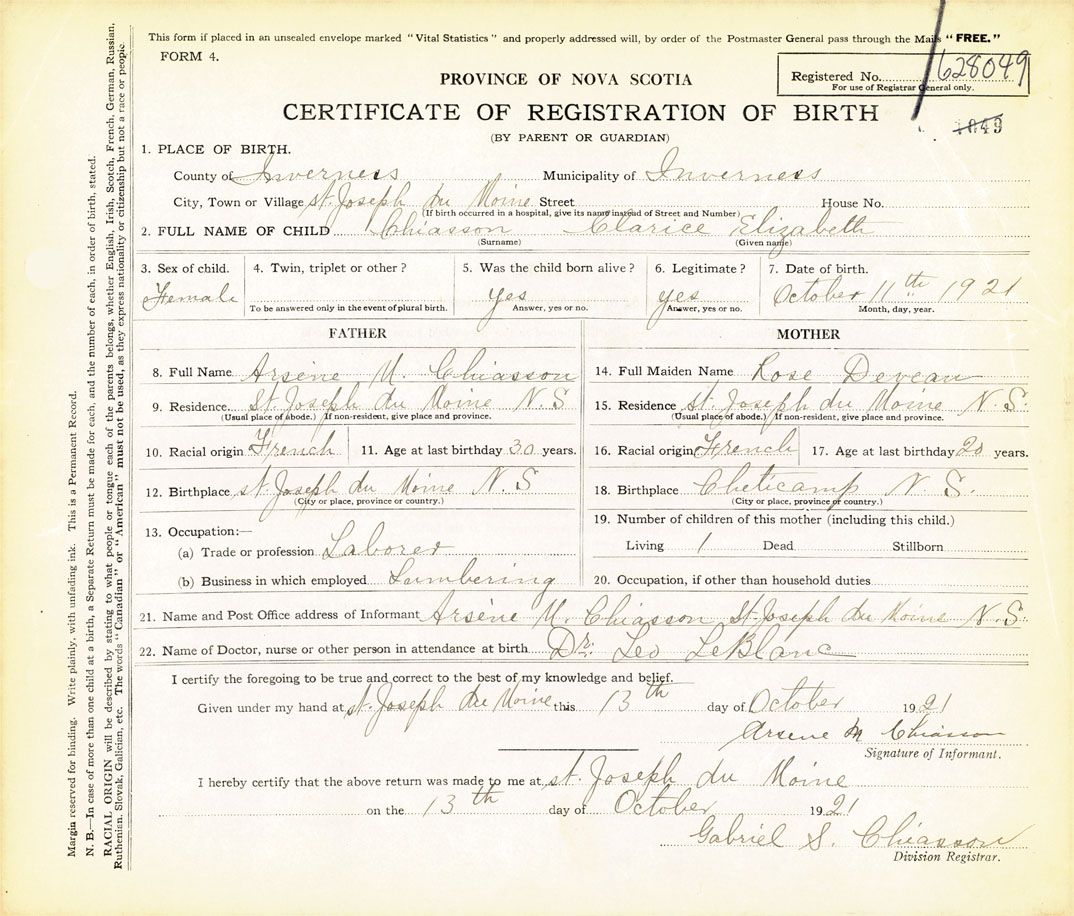 This form if placed in an unsealed envelope marked "Vital Statistics" and properly addressed will, by order of the Postmaster General pass through the Mails "FREE."
FORM 4.
PROVINCE OF NOVA SCOTIA
Registered No. 628049
For use of Registrar General only.
CERTIFICATE OF REGISTRATION OF BIRTH
(BY PARENT OR GUARDIAN)
1. PLACE OF BIRTH.
County of Inverness Municipality of Inverness
City, Town or Village St. Joseph du Moine Street House No.
(If birth occurred in a hospital, give its name instead of Street and Number)
2. FULL NAME OF CHILD Chiasson Clarice Elizabeth
(Surname) (Given name)
3. Sex of child. 4. Twin, triplet or other? 5. Was the child born alive? 6. Legitimate? 7. Date of birth.
Female yes yes October 11th 1921
To be answered only in the event of plural birth. Answer, yes or no. Answer, yes or no. Month, day, year.
FATHER
8. Full Name Arsène M. Chiasson
9. Residence St. Joseph du Moine N.S
(Usual place of abode.) If non-resident, give place and province.
10. Racial origin French 11. Age at last birthday 30 years.
12. Birthplace St. Joseph du Moine N.S
(City or place, province or country.)
13. Occupation:—
(a) Trade or profession Laborer
(b) Business in which employed Lumbering
MOTHER
14. Full Maiden Name Rose Deveau
15. Residence St. Joseph du Moine N.S.
(Usual place of abode.) If non-resident, give place and province.
16. Racial origin French 17. Age at last birthday 20 years.
18. Birthplace Cheticamp N.S.
(City or place, province or country.)
19. Number of children of this mother (including this child.)
Living 1 Dead Stillborn
20. Occupation, if other than household duties
21. Name and Post Office address of Informant Arsène M. Chiasson St. Joseph du Moine N.S.
22. Name of Doctor, nurse or other person in attendance at birth Dr. Leo LeBlanc
I certify the foregoing to be true and correct to the best of my knowledge and belief.
Given under my hand at St. Joseph du Moine this 13th day of October 1921
Arsene M Chiasson
Signature of Informant.
I hereby certify that the above return was made to me at St. Joseph du Moine
on the 13th day of October 1921
Gabriel S. Chiasson
Division Registrar.
Margin reserved for binding. Write plainly, with unfading ink. This is a Permanent Record.
N. B.—In case of more than one child at a birth, a Separate Return must be made for each, and the number of each, in order of birth, stated.
RACIAL ORIGIN will be described by stating to what people or tongue each of the parents belongs, whether English, Irish, Scotch, French, German, Russian,
Ruthenian, Slovak, Galician, etc. The words "Canadian" or "American" must not be used, as they express nationality or citizenship but not a race or people.